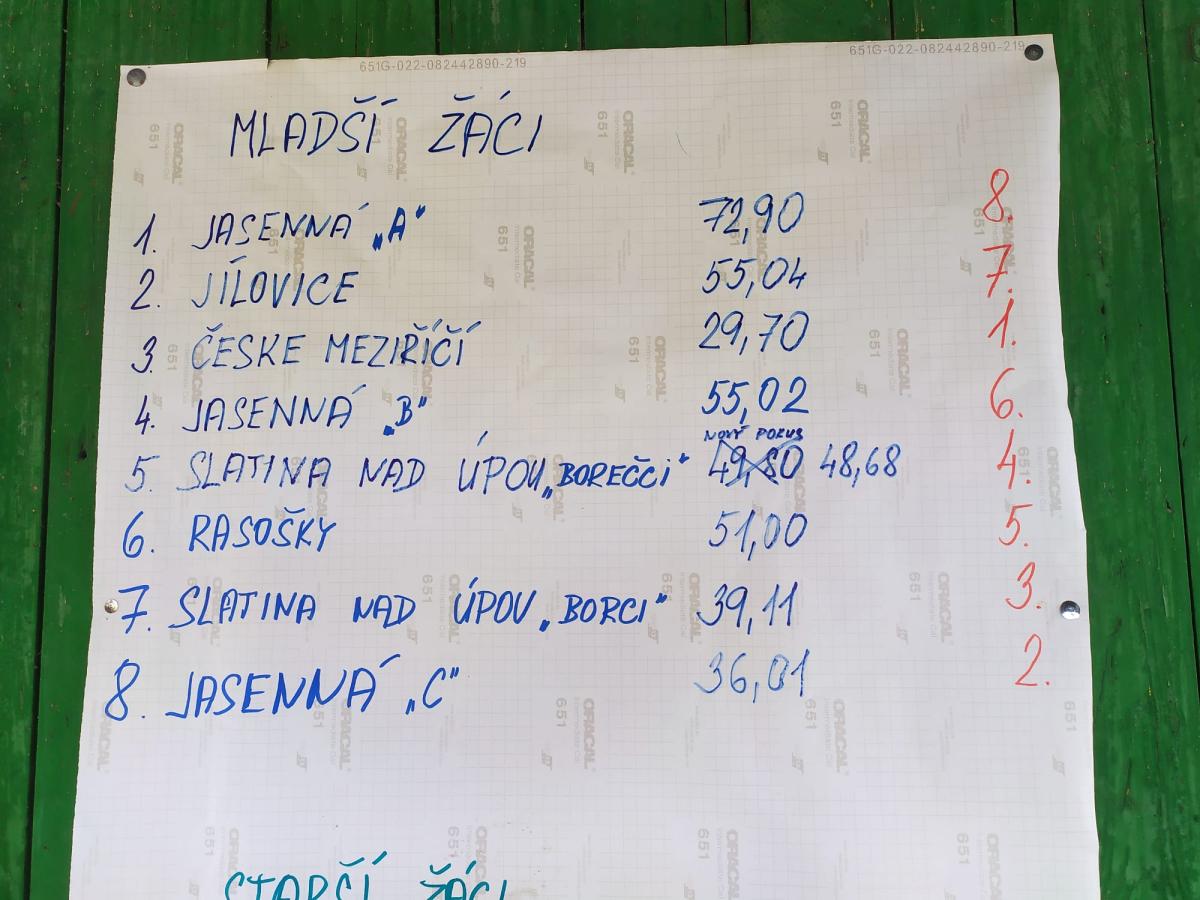 651G-022-082442890-219 651G-022-082442890-219
MLADŠÍ ŽÁCI
1. JASENNÁ „A“ 72,90 8.
2. JÍLOVICE 55,04 7.
3. ČESKE MEZIŘÍČÍ 29,70 1.
4. JASENNÁ „B“ 55,02 6.
NOVÝ POKUS
5. SLATINA NAD ÚPOU „BOREČCI“ 49,80 48,68 4.
6. RASOŠKY 51,00 5.
7. SLATINA NAD ÚPOV „BORCI“ 39,11 3.
8. JASENNÁ „C“ 36,01 2.
STARŠÍ ŽÁCI
651 ORACAL